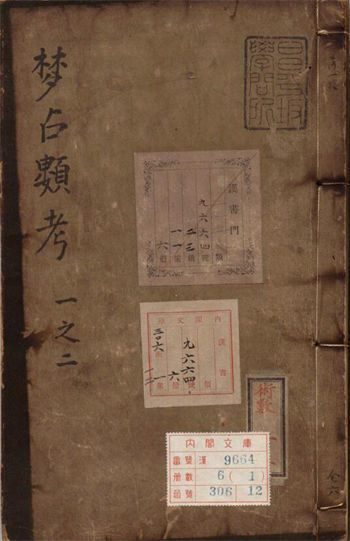 梦占類考 一之二
昌平坂
學問所
漢書門
類
九六六四號
二三凾
一一架
六冊
内閣文庫
漢書
九六六四
六
三〇六
術數
全六
内閣文庫
番號 漢 9664
冊數 6(1)
函號 306 12